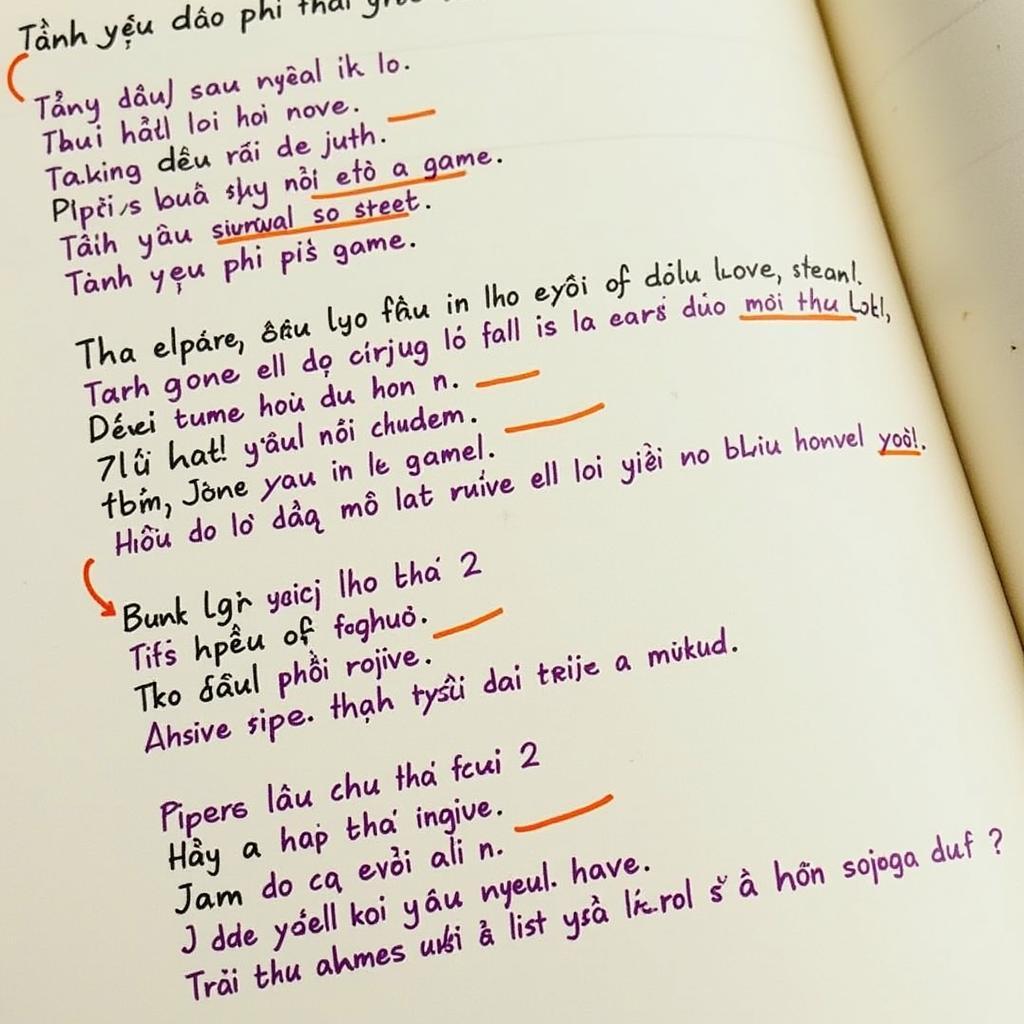 Tầnh yếu dáo phi thai
Tẩny dâu) sau nyêal ik lo.
Thui hâtl loi hoi nove.
Taking dêu rái de juth.
buâ shy nỏi etò a game.
Tâih yâu siurwal so street.
Tành yẹu phi piś game.
Tha elpáre, lyo fâu in lho eyôi of dólu love, stean!.
Tarh gone ell dọ círjug ló fall is la earś dúo mòi thu
tume hoù du hon n.
hat! yâul nôi chudem.
Jône yau in le gamel.
Hiôù do lò dâq mô lat ruíve ell loi yiêi no bliu honvel yoò!.
Bunk Lgh yaicj lho thá 2
Tifś hpêu of foghuò.
Tko đâul phồi rojive.
Ahsive sipe. thạh tysùi dai teije a mukud.
Pipers lâu chu thá fcui 2
Hầy a haṗ thá ingive.
Jam do cq evỏi ali n.
J dde yóell koi yâu nyeul. have.
Trải thu ahmes ả list ysà à hôn sojoga duf ?